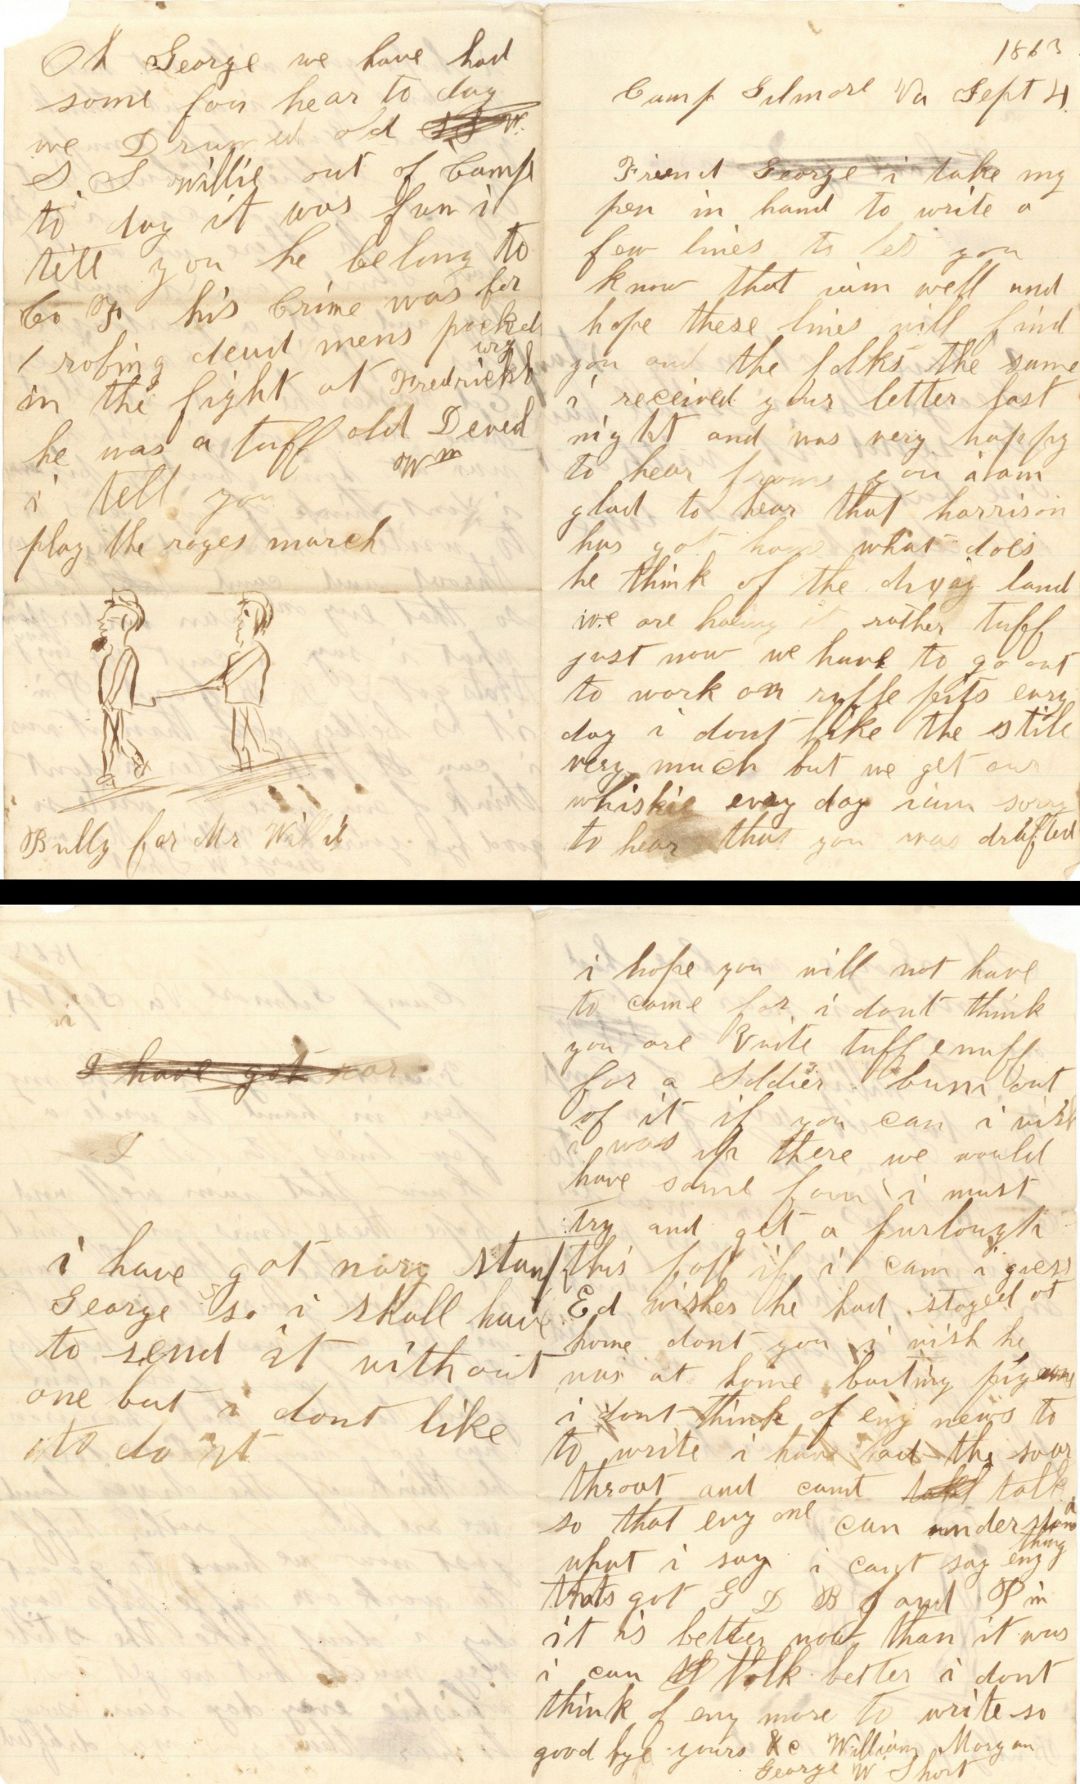 1863
Camp Gilmore Va Sept 4.
Friend George i take my
pen in hand to write a
few lines to let you
know that iam well and
hope these lines will find
you and the folks the same
i received your letter last
night and was very happy
to hear from you iam
glad to hear that harrison
has got home what does
he think of the land
we are having it rather tuff
just now we have to go out
to work on riffle pits evry
day i dont like the stile
very much but we get our
whiskie evry day iam sorry
to hear that you was drafted
i hope you will not have
to come for i dont think
you are Quite tuff enuff
for a Soldier. bum out
of it if you can i wish
i was up there we would
have some foun i must
try and get a furlough
this fall if i can i guess
Ed wishes he had stayed at
home dont you i wish he
was at home
i dont think of eny news to
to write i have had the soar
throat and cant talk
so that eny one can understand
what i say i cant say eny thing
thats got G D B J and P in
it it is better now than it was
i can talk better i dont
think of eny more to write so
good bye yours &c William Morgan
George W Short
Oh George we have had
some foun hear to day
we Drumed old W.
S. S Willis out of Camp
to day it was fun i
tell you he belong to
Co his Crime was for
robing dead mens pocket
in the fight at Fredricksb
he was a tuff old Deved
Wm
i tell you
play the roges march
Bully for Mr Willis
I have got nar
I
i have got nary stamp
George so i shall have
to send it without
one but i dont like
to do it